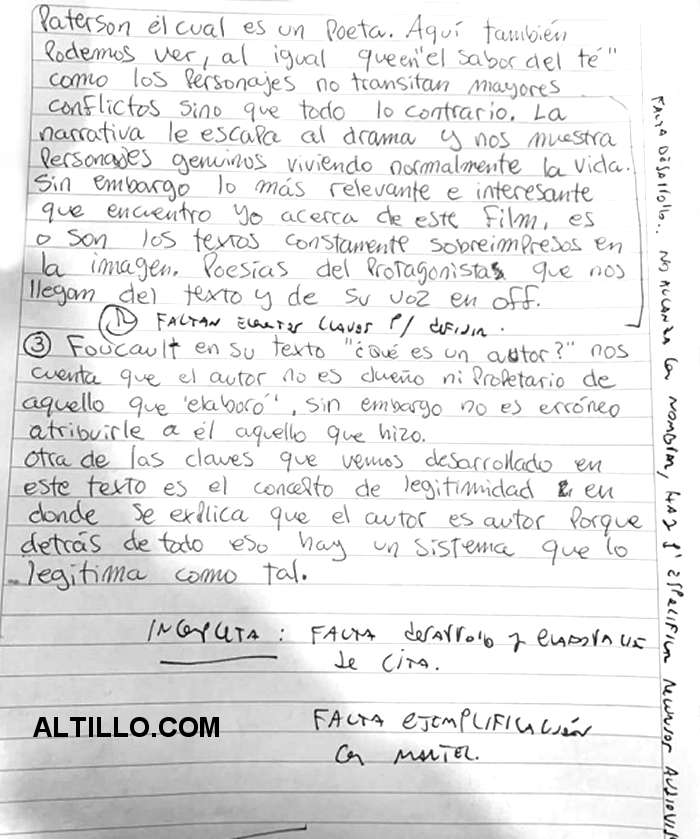 Paterson él cual es un Poeta. Aquí también
Podemos ver, al igual que en "el sabor del té"
como los Personajes no transitan mayores
conflictos sino que todo lo contrario. La
narrativa le escapa al drama y nos muestra
Personajes genuinos viviendo normalmente la vida.
Sin embargo lo más relevante e interesante
que encuentro yo acerca de este Film, es
o son los textos constamente sobreimpresos en
la imagen. Poesías del Protagonista que nos
llegan del texto y de su voz en off.
FALTAN CLAVES P/
③ Foucault en su texto "¿Qué es un autor?" nos
cuenta que el autor no es dueño ni Propetario de
aquello que 'elaboró', sin embargo no es erróneo
atribuirle a él aquello que hizo.
otra de las claves que vemos desarrollado en
este texto es el concepto de legitimidad en
donde se explica que el autor es autor Porque
detrás de todo eso hay un sistema que lo
legitima como tal.
INCOMPLETA: FALTA desarrollo y
de CITA.
FALTA EJEMPLIFICACIÓN
con MARTEL.
FALTA DESARROLLO.. NO ALCANZA con NOMBRAR, HAY q' ESPECIFICAR RECURSOS
ALTILLO.COM